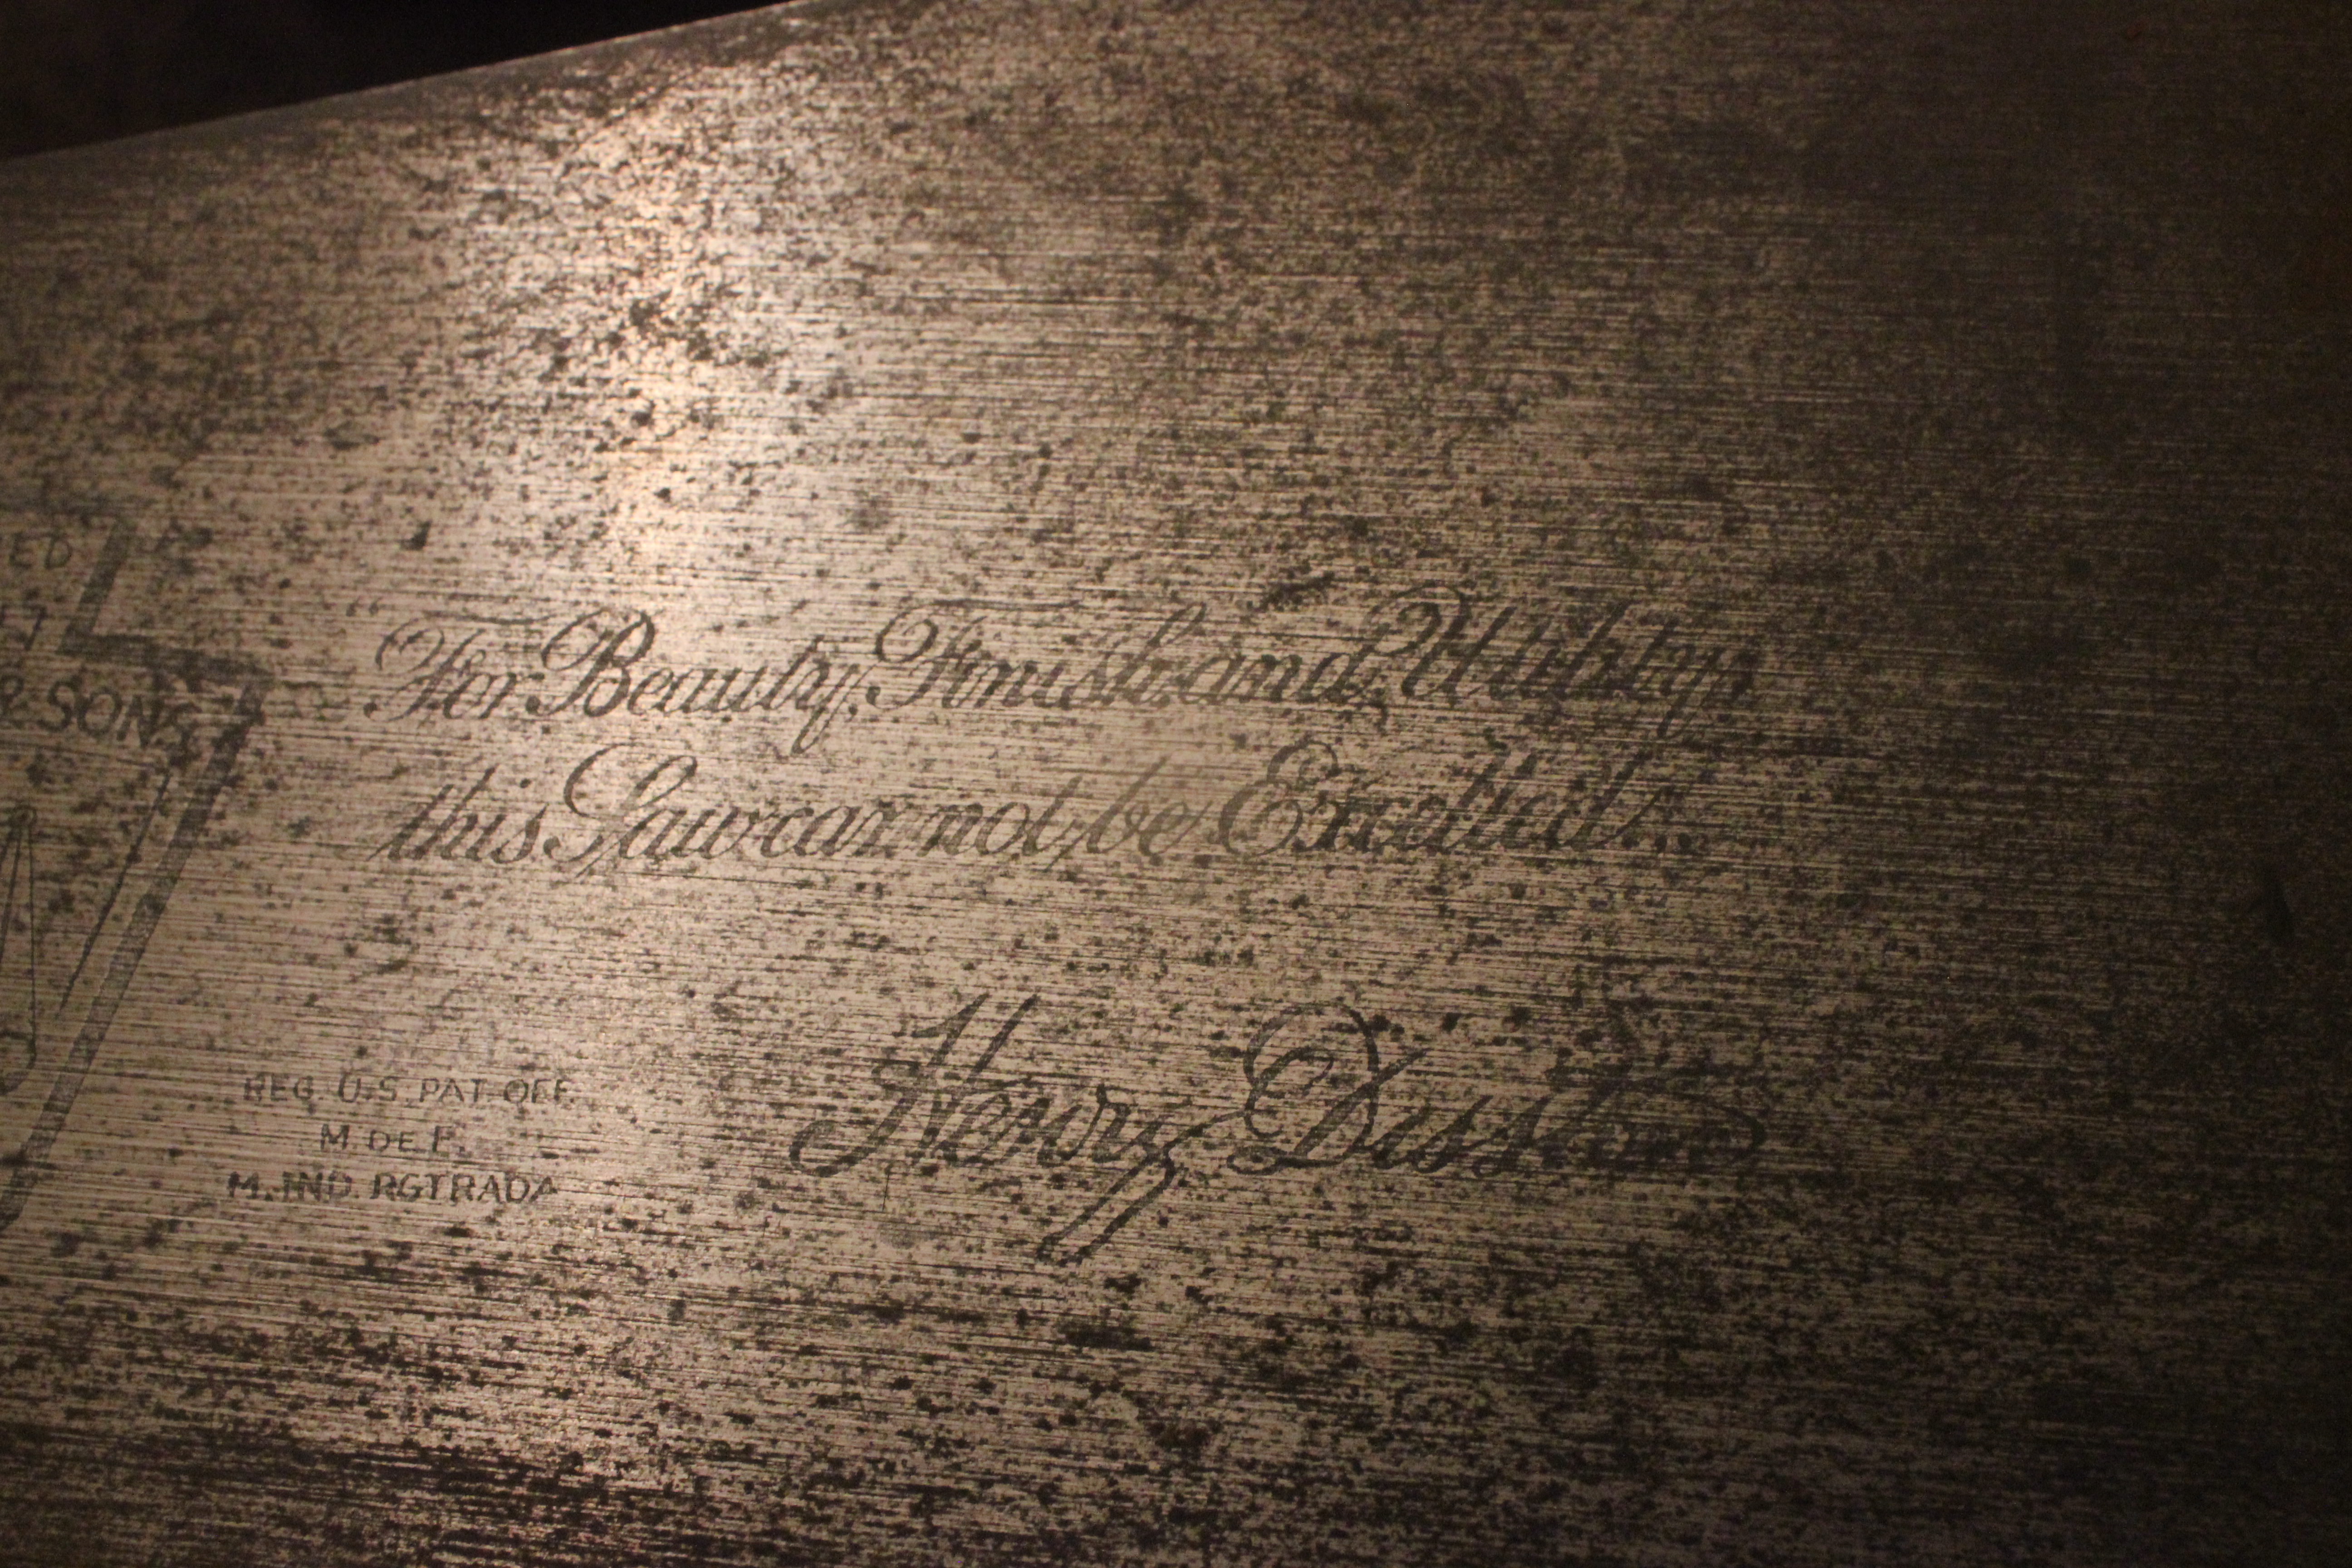 ED
& SONS
"For Beauty, Finish and Utility,
this Saw cannot be Excelled."
Henry Disston
REG. U.S. PAT. OFF.
M. DE F.
M. IND. RGTRADA